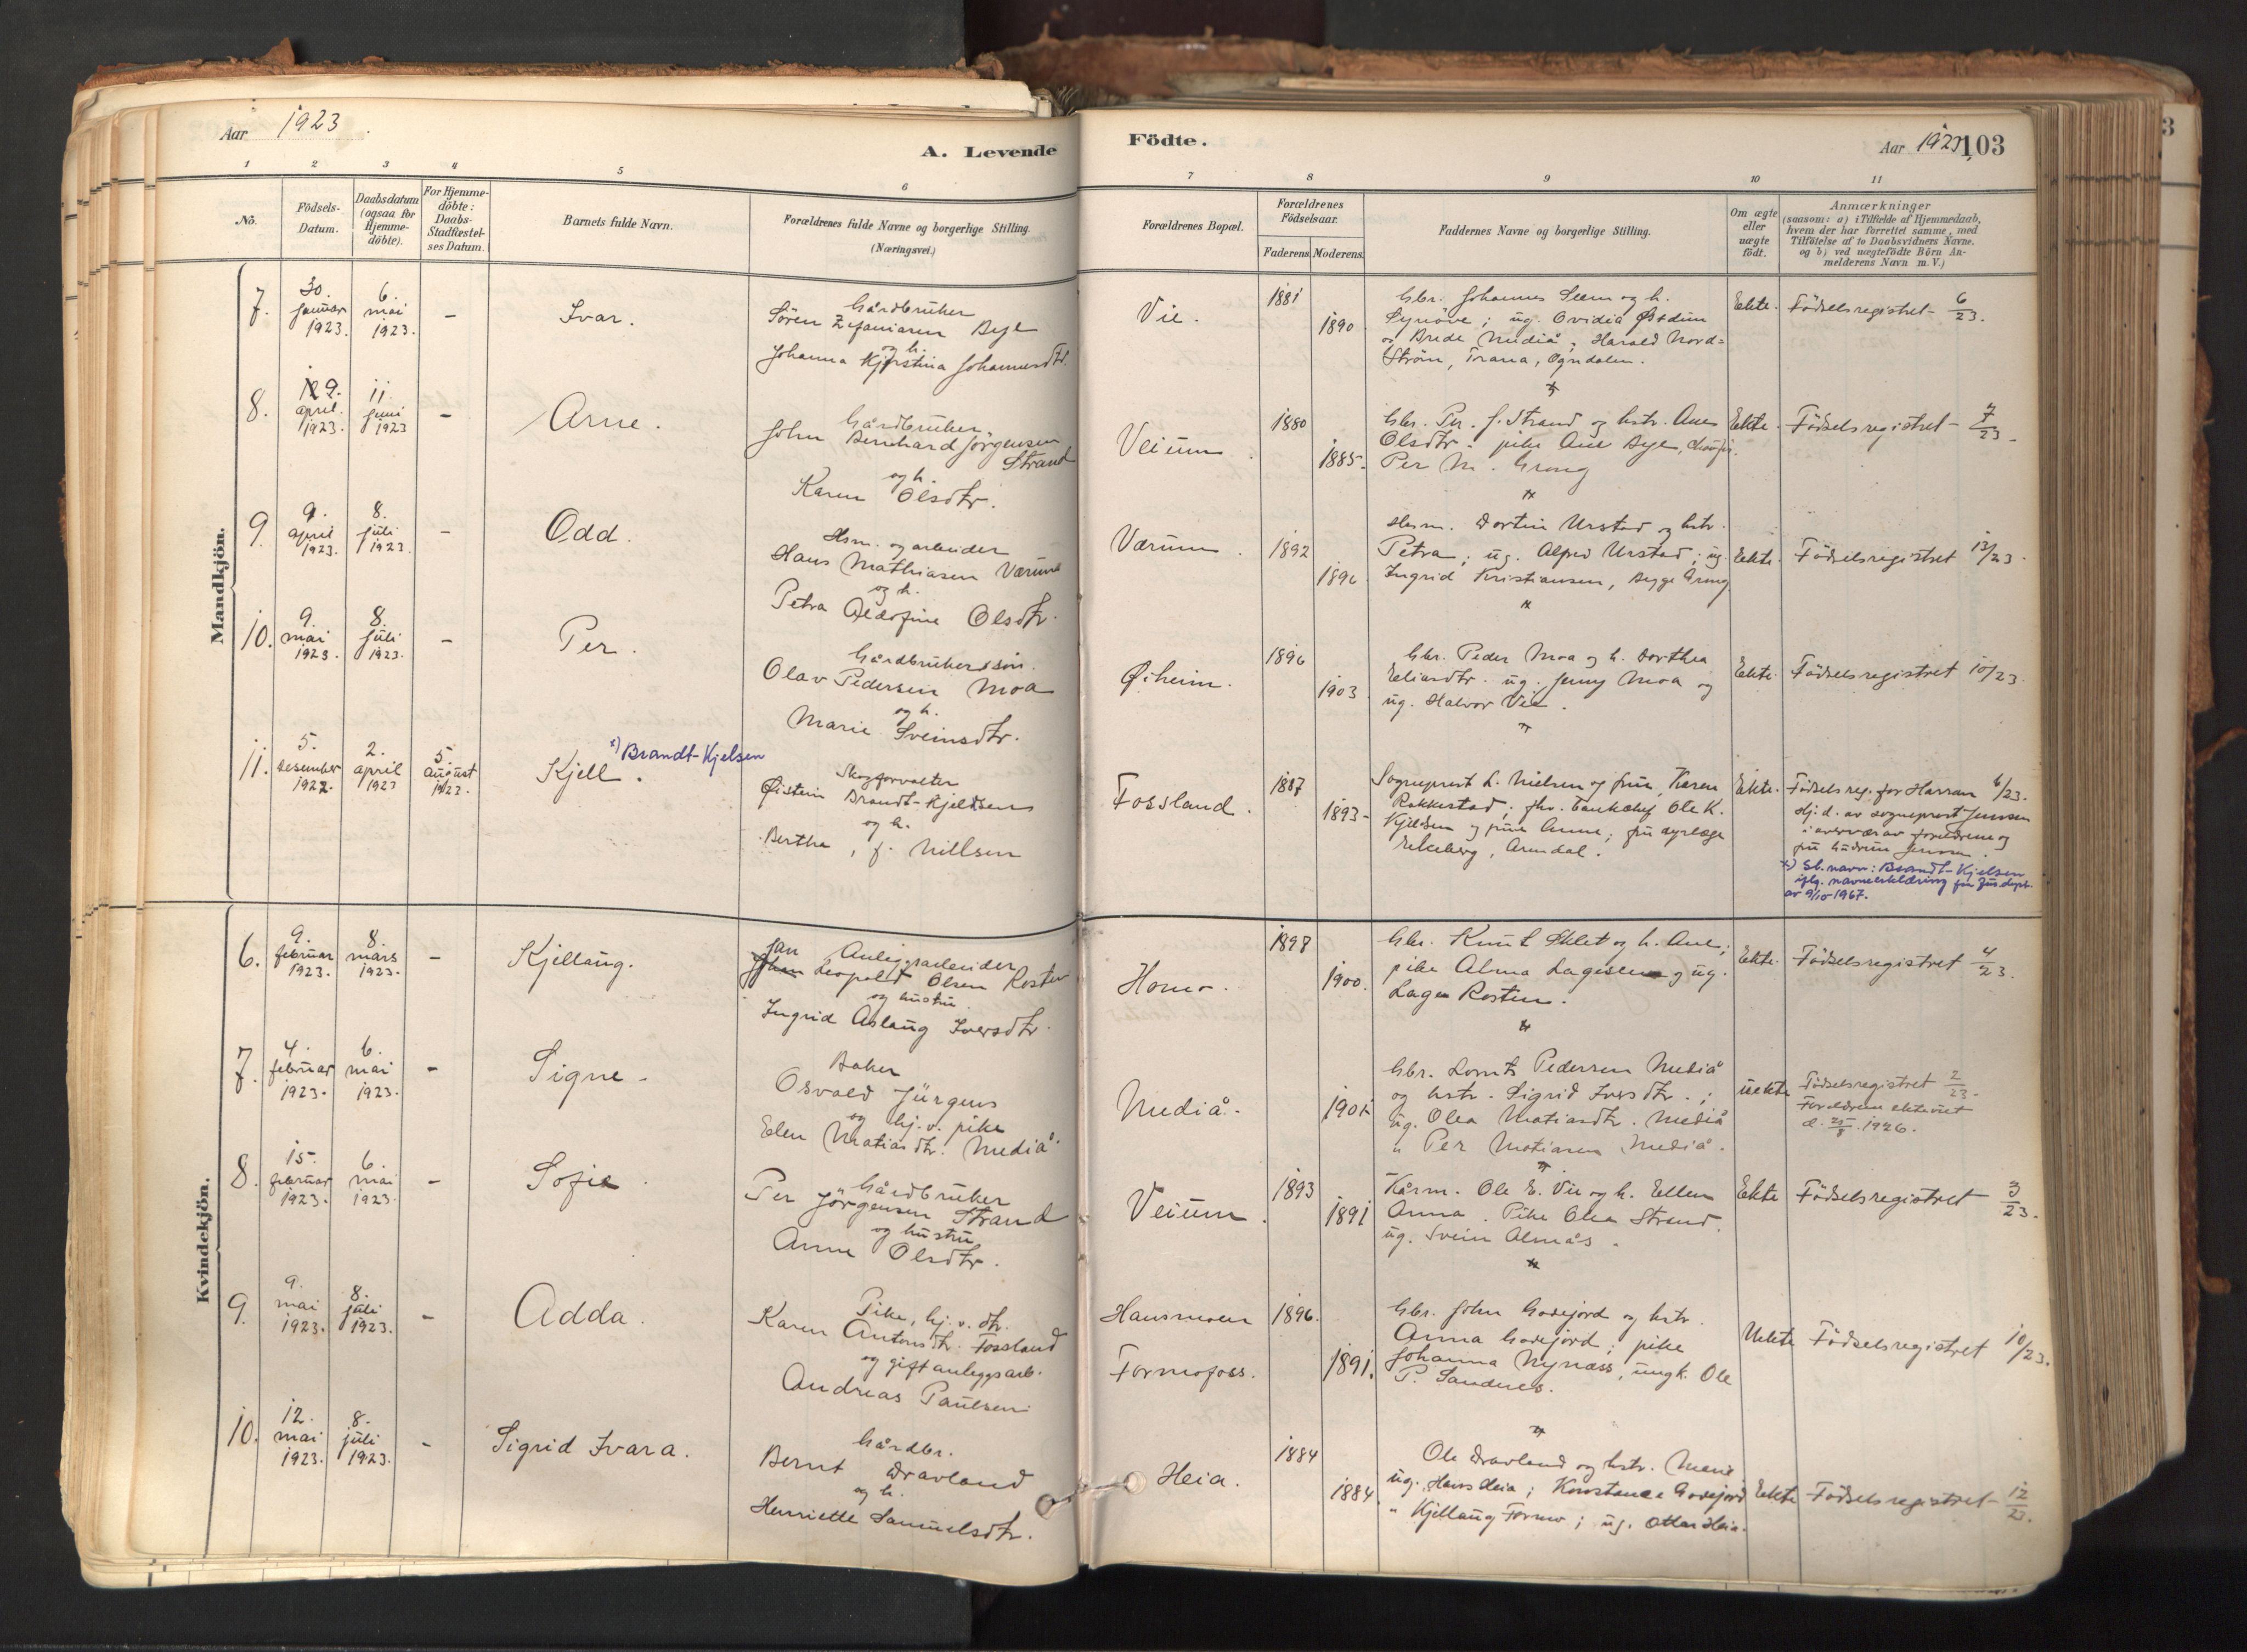 Aar 1923.
A. Levende
Födte.
Aar 1923. 103
1 2 3 4 5 6
7 8 9 10 11
No.
Födsels-Datum.
Daabsdatum (ogsaa for Hjemme-döbte).
For Hjemme-döbte: Daabs-Stadfæstel-ses Datum.
Barnets fulde Navn.
Forældrenes fulde Navne og borgerlige Stilling.
(Næringsvei.)
Forældrenes Bopæl.
Forældrenes Födselsaar.
Faderens Moderens
Faddernes Navne og borgerlige Stilling.
Om ægte eller uægte födt.
Anmærkninger
(saasom: a) i Tilfælde af Hjemmedaab,
hvem der har forrettet samme, med
Tilföielse af to Daabsvidners Navne.
og b) ved uægtefödte Börn An-
melderens Navn m. V.)
Mandkjön.
7. 30. januar 1923. 6. mai 1923. - Ivar.
Gårdbruker
Sören Zefaniasen Bye
og h.
Johanna Kjerstina Johannesdtr.
Vie. 1881 1890
Gbr. Johannes Seem og h.
Synöve; ug. Ovidia Östdun
og Brede Mediå; Harald Nord=
Ström, Trana, Ogndalen.
Ekte. Födselsregistret 6/23.
8. 9. april 1923. 11. juni 1923 - Arne.
Gårdbruker,
John Bernhard Jörgensen
Strand
og h.
Karen Olsdtr.
Veium. 1880 1885.
Gbr. Per J. Strand og hstr. Anne
Olsdtr. pike Ane Bye,
Per M. Grong
Ekte. Födselsregistret - 7/23
9. 9. april 1923. 8. juli 1923. - Odd.
Hsm. og arbeider
Hans Mathiasen Værum
og h.
Petra Aldofine Olsdtr.
Værum. 1892 1896
Husm. Dortin Urstad og hstr.
Petra; ug. Alfred Urstad; ug.
Ingrid Kristiansen, Bygge Grong
Ekte. Födselsregistret 13/23.
10. 9. mai 1923. 8. juli 1923. - Per.
Gårdbrukersön.
Olav Pedersen Moa
og h.
Marie Sveinsdtr.
Öiheim. 1896 1903
Gbr. Peder Moa og h. Dorthea
Eliasdtr. ug. Jenny Moa og
ug. Halvor Vie.
Ekte. Födselsregistret 10/23.
11. 5. desember 1922. 2. april 1923 5. august 1923. Kjell.
x) Brandt-Kjelsen
Skogforvalter
Øistein Brandt-Kjeldsen
og h.
Bertha, f. Nillsen
Fossland. 1887 1893-
Sogneprest L. Nielsen og frue, Karen
Rakkestad; fhv. bankchef Ole K.
Kjeldsen og frue Anne; fru dyrlæge
Ekeberg, Arendal.
Ekte. Födselsreg. for Harran 6/23.
Hj. d. av sogneprest Jenssen
i overvær av foreldrene og
fru Gudrun Jenssen.
x) Sl. navn: Brandt-Kjelsen
iflg. navneerklæring fra Jus.dept.
av 9/10 1967.
Kvindekjön.
6. 9. februar 1923. 8. mars 1923. - Kjellaug.
Anleggsarbeider
Jan Leopold Olsen Rosten
og hustru
Ingrid Aslaug Iversdtr.
Homo. 1898 1900.
Gbr. Knut Sklet og h. Ane;
pike Alma Lagesen og ug.
Lage Rosten.
Ekte. Födselsregistret 4/23.
7. 4. februar 1923. 6. mai 1923. - Signe.
Baker
Osvald Jürgens
og hj.v. pike
Elen Matiasdtr. Mediå.
Mediå. 1901
Gbr. Lornts Pedersen Mediå
og hstr. Sigrid Iversdtr.;
ug. Olea Matiasdtr. Mediå
" Per Matiasen Mediå.
uekte Födselsregistret 2/23.
Foreldrene ekteviet
d. 25/8 1926.
8. 15. februar 1923. 6. mai 1923. - Sofie.
Gårdbruker
Per Jörgensen Strand
og hustru
Anne Olsdtr.
Veium. 1893 1891
Kårm. Ole E. Vie og h. Ellen
Anna. Pike Olea Strand.
ug. Svein Almås.
Ekte Födselsregistret 3/23.
9. 9. mai 1923. 8. juli 1923. - Adda.
Pike, hj. v. dtr.
Karen Antonsdtr. Fossland
og gift anleggsarb.
Andreas Paulsen
Hansmoen 1896.
Formofoss. 1891.
Gbr. John Godejord og hstr.
Anna Godejord; pike
Johanna Nynæss, ungk. Ole
P. Sandnes.
Uekte Födselsregistret 10/23.
10. 12. mai 1923. 8. juli 1923. - Sigrid Ivara.
Gårdbr.
Bernt Dravland
og h.
Henriette Samuelsdtr.
Heia. 1884 1884
Ole Dravland og hstr. Marie
ug. Hans Heia; Konstance Godejord
" Kjellaug Formo; ug. Ottar Heia.
Ekte Födselsregistret 12/23.